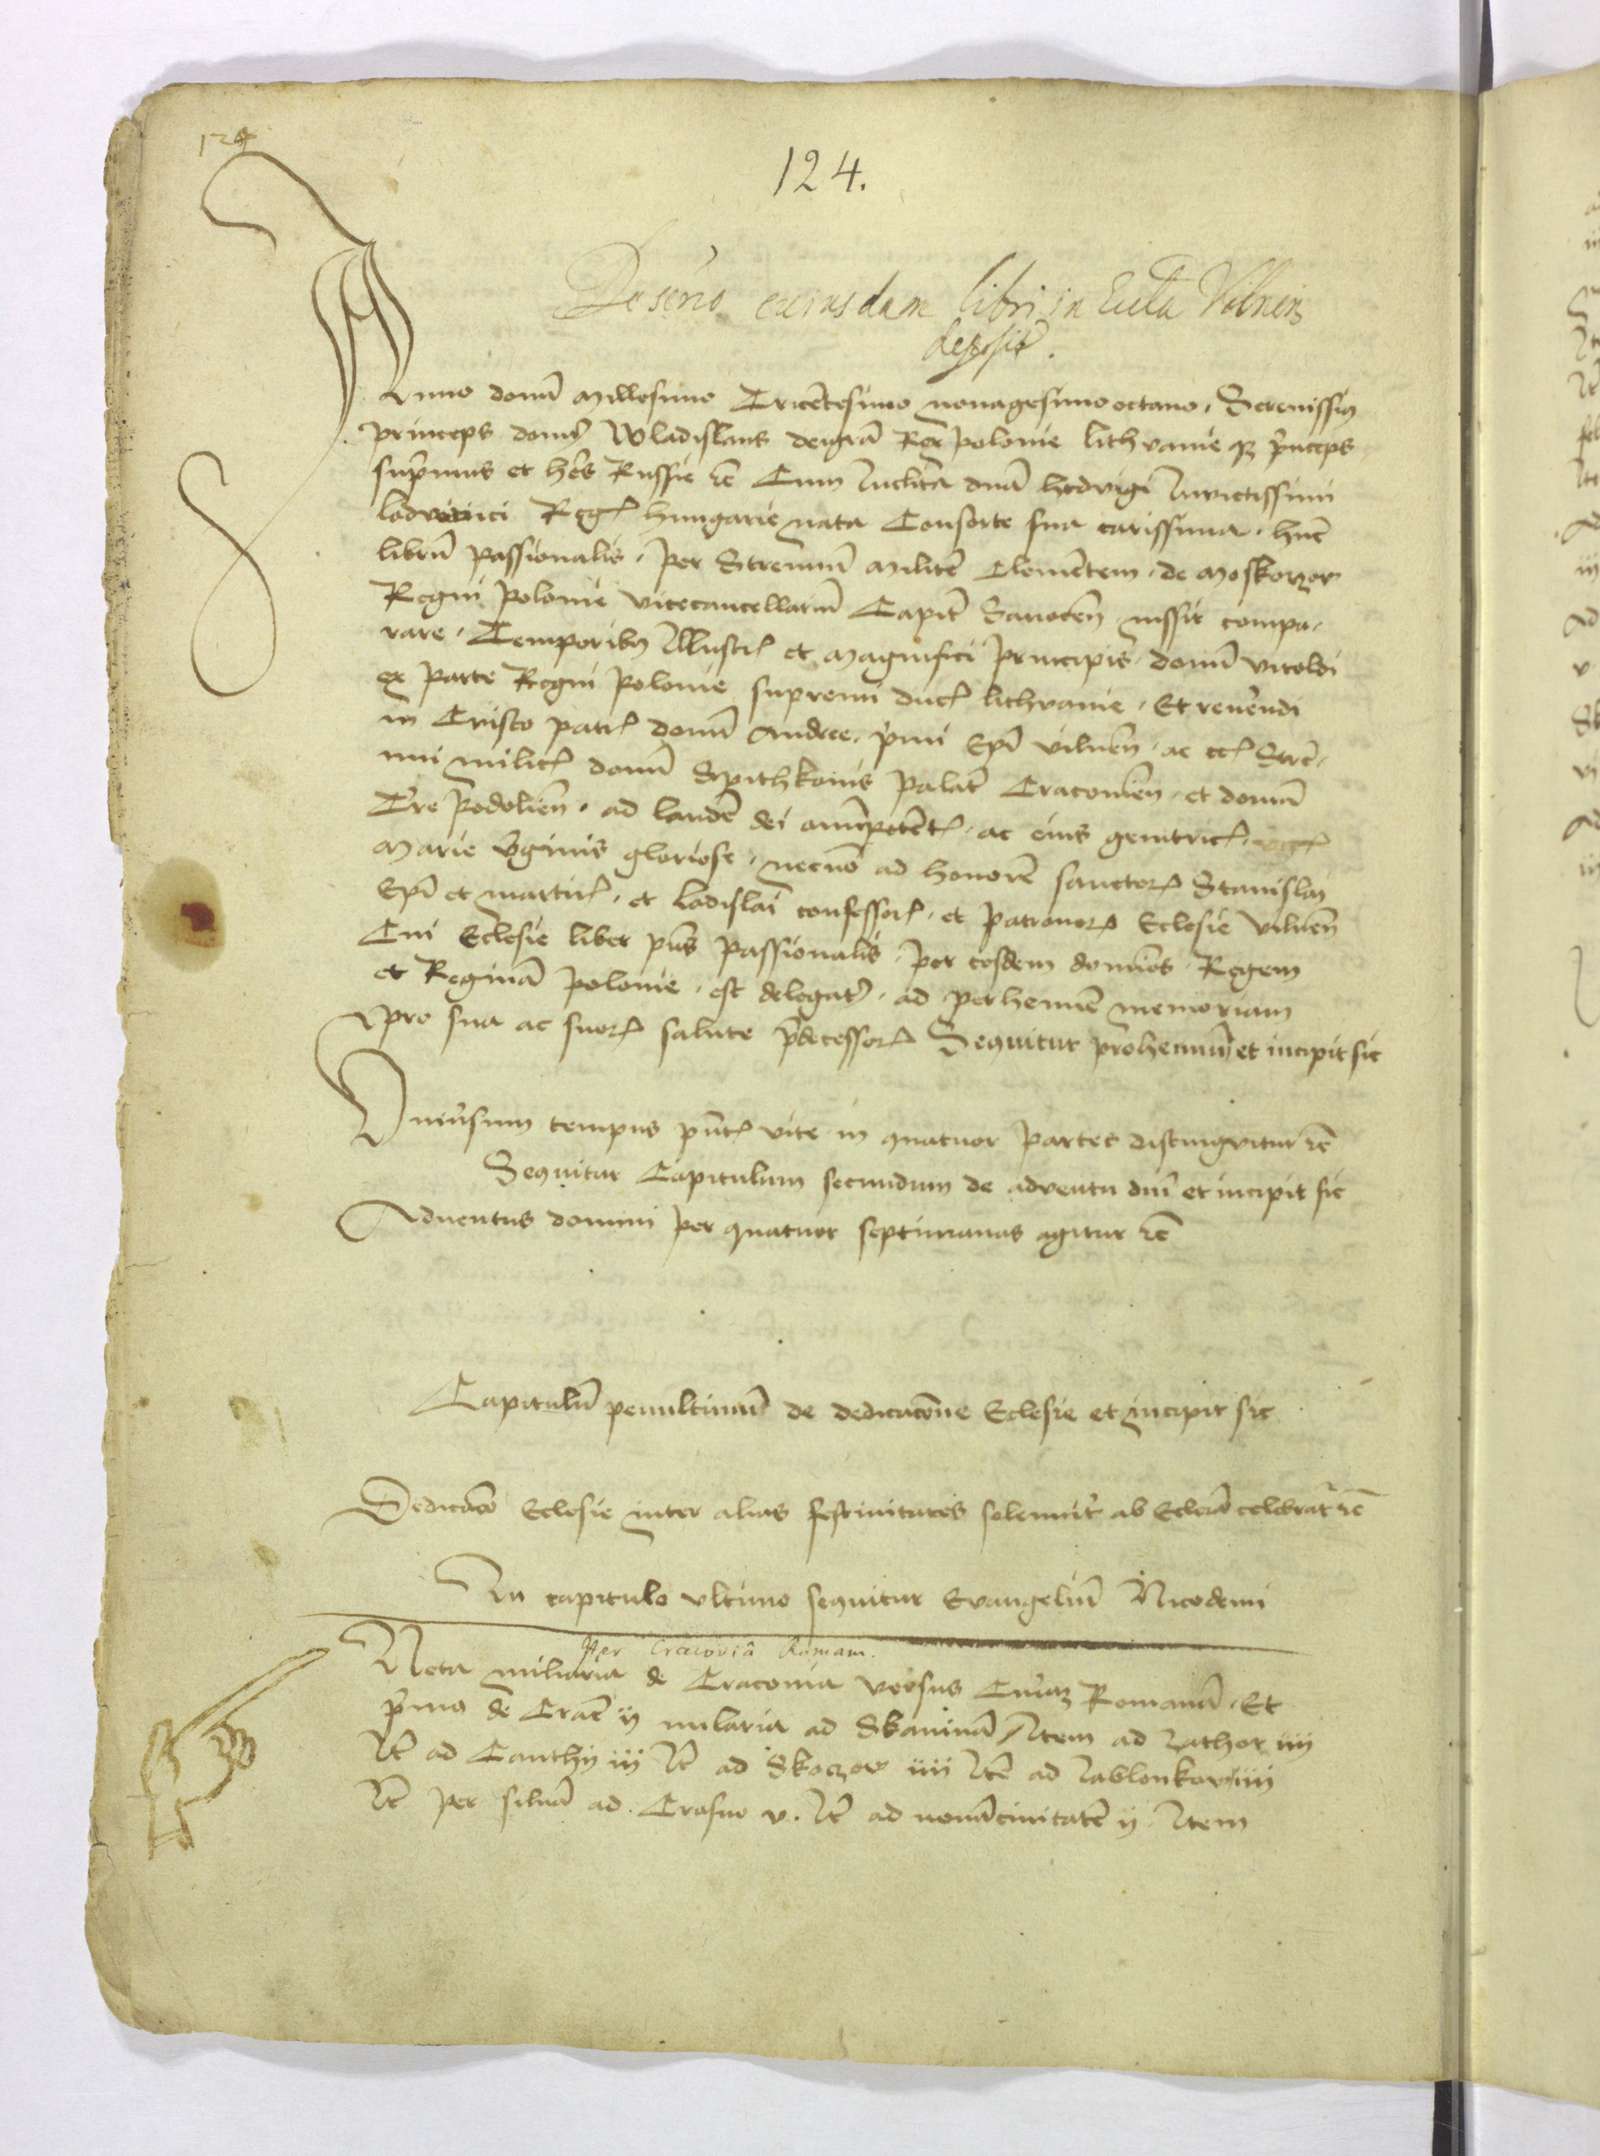 124
124.
De serie cuiusdam libri in Eccla Vilnen
deposit.
Anno domī Millesimo Tricētesimo nonagesimo octavo. Serenissim
princeps domꝰ Wladislaus dei grā Rex polonie lithvanie qz p̄nceps
sup̄mus et hēs Russie rc̄ Cum Inclita dnā hedvigi Invictissimi
lodvici Regꝭ hungarie nata Consorte sua carissima. hūc
librū passionalis. per Strenuū Militē Clemētem. de Moskorzow
Regni polonie vicecancellariū Capit̄ Sanocēn iussit compa-
rare. Temporibꝫ Illustrꝭ et Magnifici principis domī vitoldi
ex parte Regni polonie supremi ducꝭ lithvanie. Et revēndi
in Cristo patrꝭ domī Andree. p̄mi Ep̄i vilnēn. ac etꝭ Strē-
nui militꝭ domī Spithkonis palat̄ Cracoviēn. et domī
Tr̄e podoliēn. ad laudē dei om̄ipotētꝭ. ac eius genitricꝭ
Marie v̄ginis gloriose. necnō ad honorē sanctorꝝ Stanislai
Ep̄i et martirꝭ. et ladislai confessorꝭ. et patronorꝝ Eclesie vilnēn
Cui Eclesie liber p̄ns passionalis. per eosdem domīos Regem
et Reginā polonie. est delegatꝰ. ad perhennē memoriam
pro sua ac suorꝝ salute p̄decessorꝝ Sequitur prohemiū et incipit sic
Univ̄sum tempus p̄ntꝭ vite in quatuor partes distingvitur rc̄
Sequitur Capitulum secundum de adventu dnī et incipit sic
Adventus domini per quatuor septimanas agitur rc̄
Capitulū penultimū de dedicacōne Eclesie et incipit sic
Dedicacō Eclesie inter alias festivitates solemnit̄ ab Ecclesia celebrat̄ rc̄
In capitulo ultimo sequitur Evangeliū Nicodemi
Per Cracoviā Romam.
Nota miliaria de Cracovia versus Curiam Romanā. Et
p̄mo de Crac̄ ij miliaria ad Skavinā Item ad Zathor iiij
It̄ ad Canthy iij It̄ ad Skoczow iiij Itē ad Iablonkow iiij
It̄ per silvā ad. Crasno v. It̄ ad novā civitatē ij Item